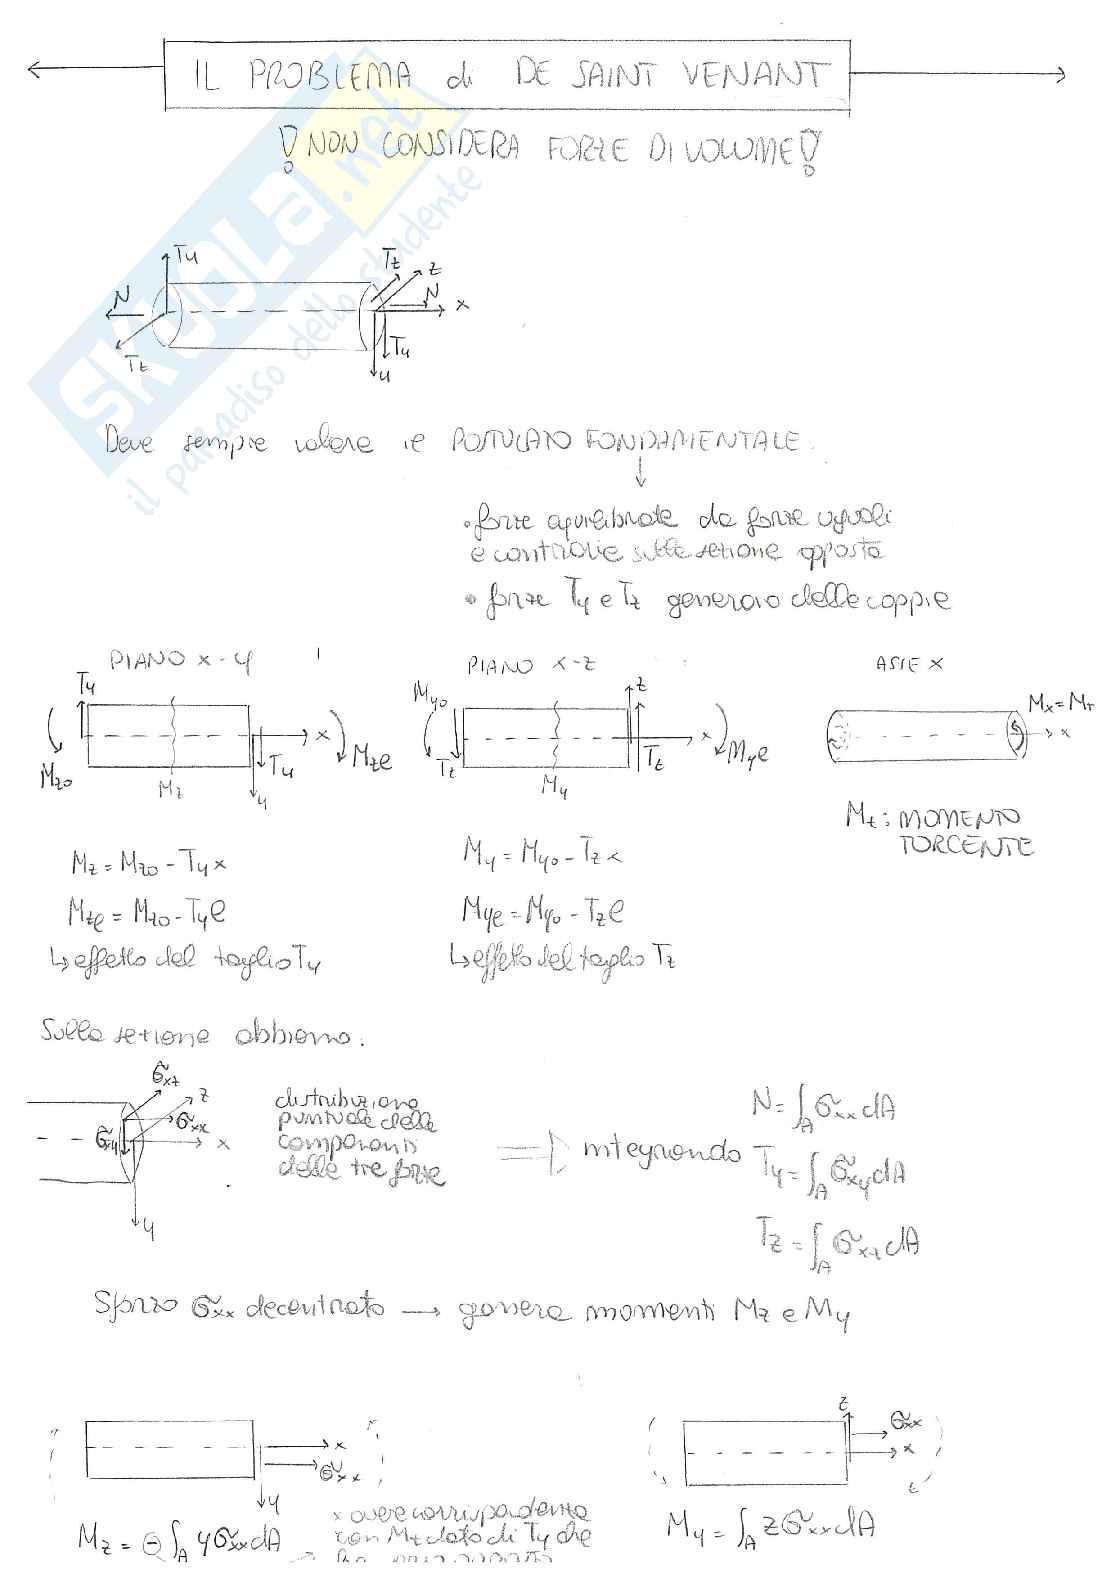 IL PROBLEMA di DE SAINT VENANT
! NON CONSIDERA FORZE DI VOLUME !
SKUOLA.net
il paradiso dello studente
Ty
Tz
z
N
N
x
Tz
Ty
y
Deve sempre valere il POSTULATO FONDAMENTALE.
• forze equilibrate da forze uguali
e contrarie sulla sezione opposta
• forze Ty e Tz generano delle coppie
PIANO x-y
PIANO x-z
ASSE x
Ty
Mz0
Mz
Ty
y
x
Mzl
My0
Tz
My
z
Tz
x
Myl
Mx = Mt
x
Mt: MOMENTO
TORCENTE
Mz = Mz0 - Ty x
My = My0 - Tz x
Mzl = Mz0 - Ty l
Myl = My0 - Tz l
↳ effetto del taglio Ty
↳ effetto del taglio Tz
Sulla sezione abbiamo:
σxz
z
σxx
σxy
x
y
distribuzione
puntuale delle
componenti
delle tre forze
⇒ integrando
N = ∫A σxx dA
Ty = ∫A σxy dA
Tz = ∫A σxz dA
Sforzo σxx decentrato → genera momenti Mz e My
x
σxx
y
z
σxx
x
Mz = ⊖ ∫A y σxx dA
x avere corrispondenza
con Mz dato di Ty che
My = ∫A z σxx dA